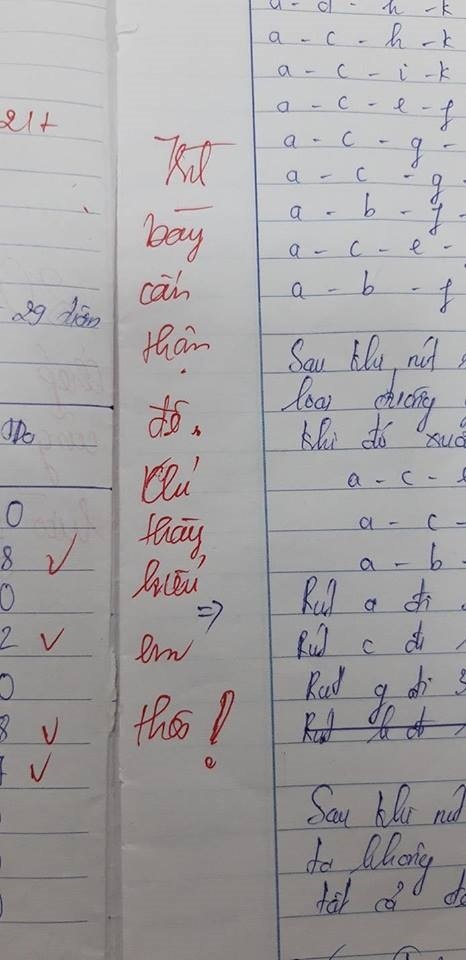 21+
29 điểm
0
8 ✓
0
2 ✓
0
8 ✓
✓
bày
cẩn
thận
đó,
thầy
hiểu
em
a - d - h - k
a - c - h - k
a - c - i - k
a - c - e - f
a - c - g -
a - c - g
a - b - f -
a - c - e -
a - b - f
Sau khi nút
loại đường
khi đó xuấ
a - c - e
a - c -
a - b -
=> Rút a đi
Rút c đi
Rút g đi 3
Rút k đi
Sau khi nút
ta không
tất cả đ